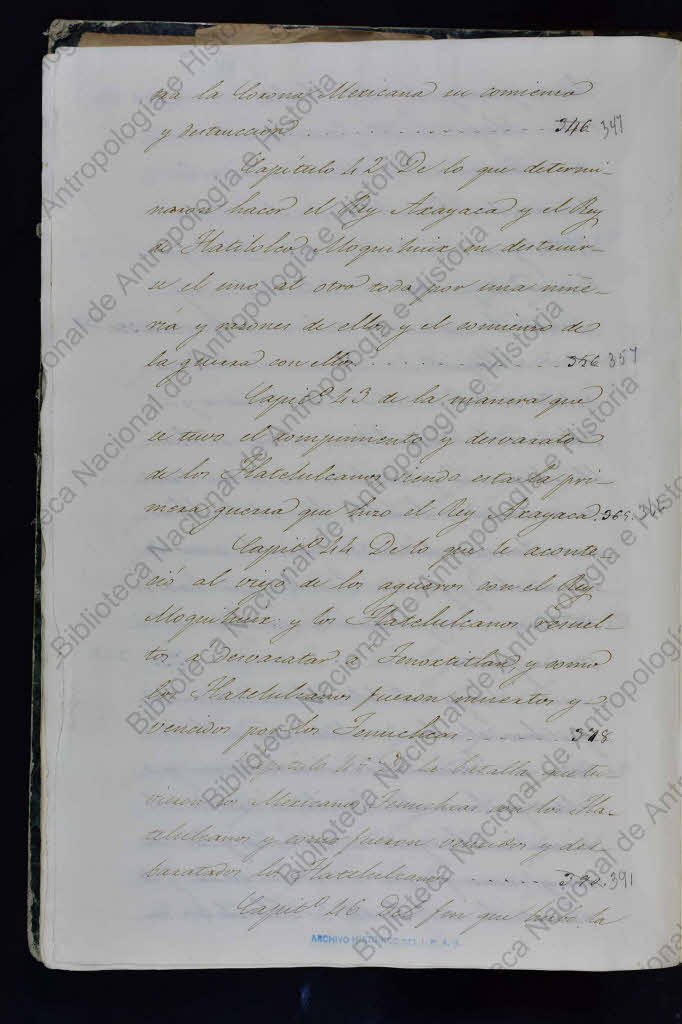 ra la Corona Mexicana su comienso
y destruccion . . . . . . . . . . . . 346 347
Capitulo 42 De lo que determi-
naron hacer el Rey Axayaca y el Rey
de Tlatilolco Moquihuix en destruir-
se el uno al otro toda por una niñe-
ría y razones de ellos y el comienzo de
la guerra con ellos . . . . . . . . . . 356 357
Capit.º 43 de la manera que
se tuvo el rompimiento y desvarato
de los Tlatelulcanos siendo esta la pri-
mera guerra que hizo el Rey Axayaca. 365. 366
Capit.º 44 De lo que le aconte-
ció al viejo de los agueros con el Rey
Moquihuix: y los Tlatelulcanos resuel-
tos a desvaratar a Tenoxtitlan, y como
los Tlatelulcanos fueron muertos y
vencidos por los Tenuchcas . . . . . . 378
Capitulo 45 De la batalla que tu-
vieron los Mexicanos Tenuchcas con los Tla-
telulcanos y como fueron vencidos y des-
baratados los Tlatelulcanos . . . . . . 390. 391
Capit.º 46 Del fin que hubo la
ARCHIVO HISTORICO DEL I. N. A. H.
Biblioteca Nacional de Antropología e Historia